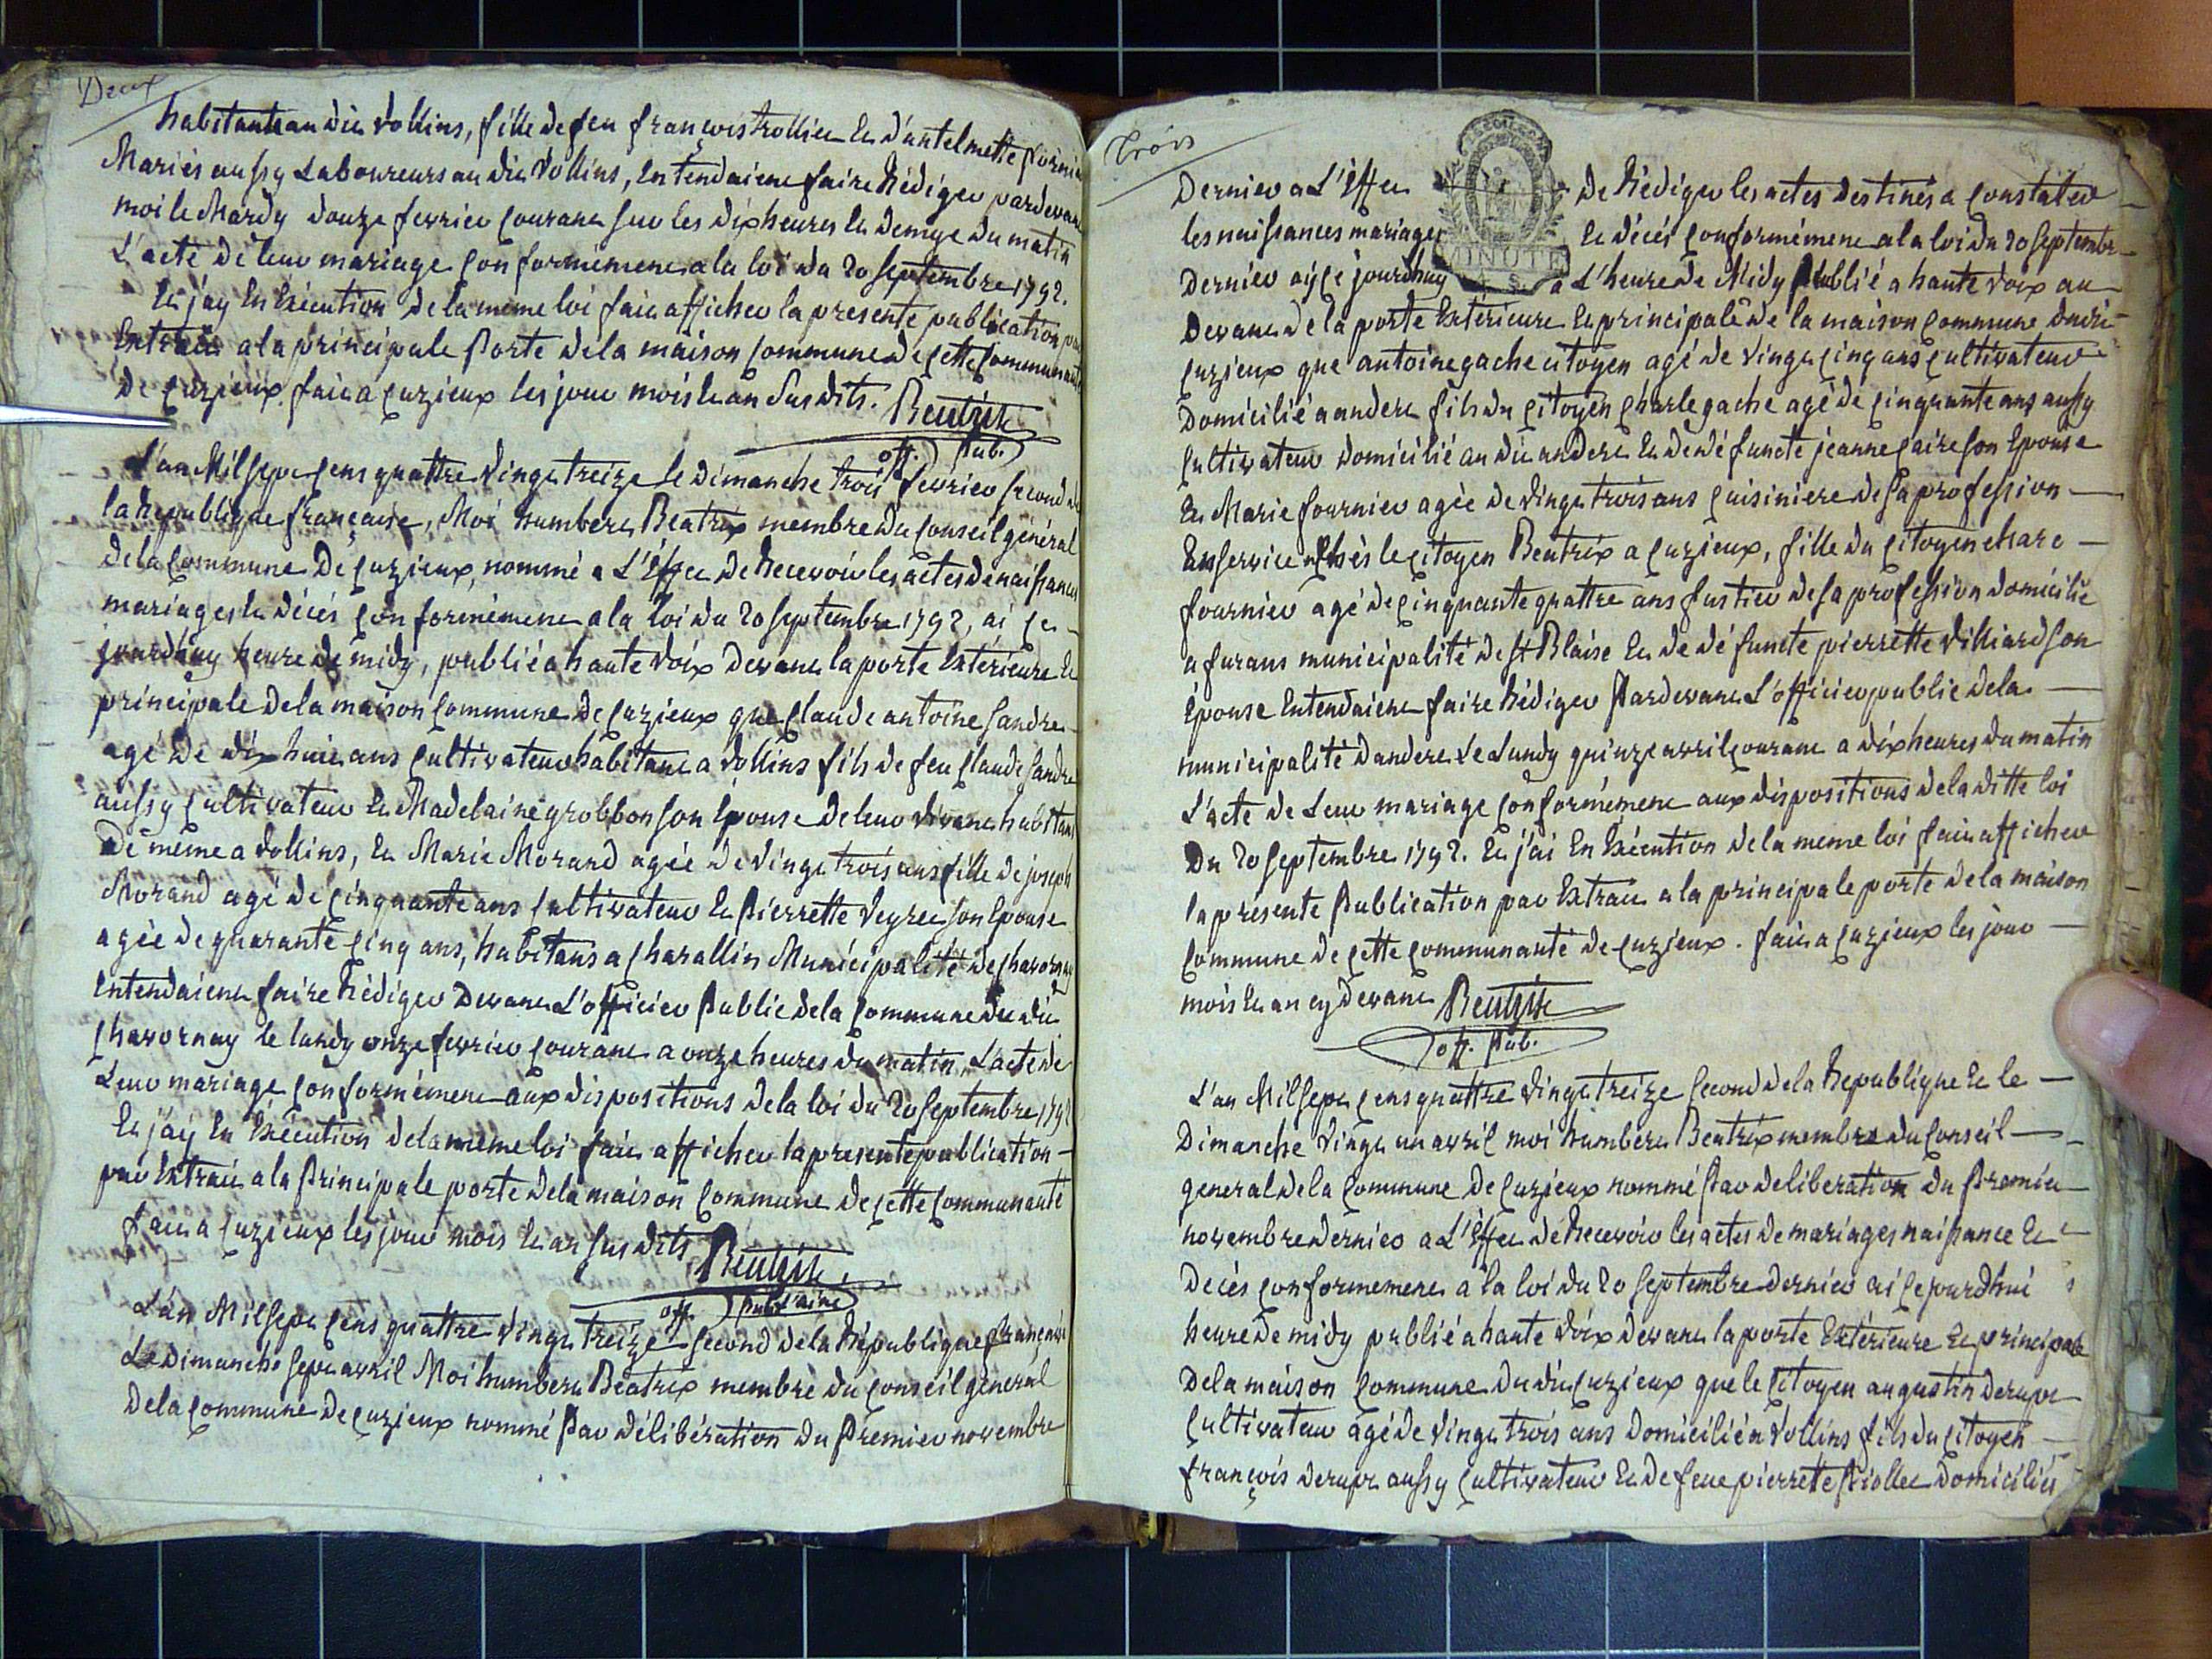 Deux
habitante au dit vollins, fille de feu françois trollier et d'antelmette
Mariés aussy Laboureurs au dit Vollins, entendaient faire Rédiger pardevant
moi le Mardy douze fevrier courant sur les dix heures et demye du matin
L'acte de leur mariage conformément a la loi du 20 septembre 1792.
Et j'ay en Exécution de la meme loi fait afficher la presente publication par
Extrait a la principale Porte de la maison commune de cette communauté
de cuzieux. fait a cuzieux les jour mois et an susdits. Beatrix
off. Pub.
L'an Mil sept cens quattre Vingt treize le dimanche trois fevrier second de
la Republique française, Moi humbert Beatrix membre du conseil général
de la commune De cuzieux, nommé a L'Effet de Recevoir les actes de naissances
mariages et décés conformément a la loi du 20 septembre 1792, ai ce
jourdhuy heure de midy, publié a haute Voix Devant la porte Extérieure et
principale de la maison commune de cuzieux que claude antoine Sandre
agé de dix huit ans cultivateur habitant a vollins fils de feu claude Sandre
aussy cultivateur et Madelaine grobbon son Epouse de leur vivant habitans
De meme a vollins, et Marie Morand agée de vingt trois ans fille de joseph
Morand agé de cinquante ans cultivateur et Pierrette Veyret son Epouse
agée de quarante cinq ans, habitans a charallin Municipalité de chavornay
entendaient faire Rédiger Devant L'officier Public de la commune du dit
chavornay le lundy onze fevrier courant a onze heures du matin, L'acte de
Leur mariage conformément aux dispositions de la loi du 20 septembre 1792
Et j'ay en Exécution de la meme loi fait afficher la presente publication
par Extrait a la Principale porte de la maison commune de cette communauté
fait a cuzieux les jour mois et an susdits Beatrix
off. Pub. L'ainé
L'an Mil sept cens quattre Vingt treize second de la Republique française
Le dimanche sept avril Moi humbert Beatrix membre du conseil général
de la commune de cuzieux nommé Par délibération du Premier novembre
trois
Dernier a L'Effet de Rédiger les actes destinés a constater
les naissances mariages et décés conformément a la loi du 20 septembre
MINUTE
4. S.
Dernier ay ce jourdhuy a L'heure de Midy Publié a haute voix au
Devant de la porte Extérieure et principale de la maison commune dudit
cuzieux que antoine gache citoyen agé de vingt cinq ans cultivateur
Domicilié a andert fils du citoyen charle gache agé de cinquante ans aussy
cultivateur domicilié au dit andert et de défuncte jeanne caire son Epouse
Et Marie fournier agée de vingt trois ans cuisiniere de sa profession
En service chès le citoyen Beatrix a cuzieux, fille du citoyen Marc
fournier agé de cinquante quattre ans fustier de sa profession domicilié
a furans municipalité de st Blaise et de défuncte pierrette Villiard son
épouse Entendaient faire Rédiger Pardevant L'officier public de la
municipalité dandert Le Lundy quinze avril courant a dix heures du matin
L'acte de Leur mariage conformément aux dispositions de la ditte loi
Du 20 septembre 1792. Et j'ai En Exécution de la meme loi fait afficher
la présente Publication par Extrait a la principale porte de la maison
commune de cette communauté de cuzieux. fait a cuzieux les jour
mois et an cy devant Beatrix
off. Pub.
L'an Mil sept cens quattre Vingt treize second de la Republique et le
Dimanche vingt un avril moi humbert Beatrix membre du conseil
general de la commune de cuzieux nommé Par deliberation du Premier
novembre dernier a L'Effet de Recevoir les actes de mariages naissance et
Décés conformement a la loi du 20 septembre dernier ai ce jourdhui
heure de midy publié a haute Voix devant la porte Extérieure et principale
De la maison commune du dit cuzieux que le citoyen augustin derupt
cultivateur agé de vingt trois ans Domicilié a Vollins fils du citoyen
françois derupt aussy cultivateur et de feue pierrette Riollet domiciliés